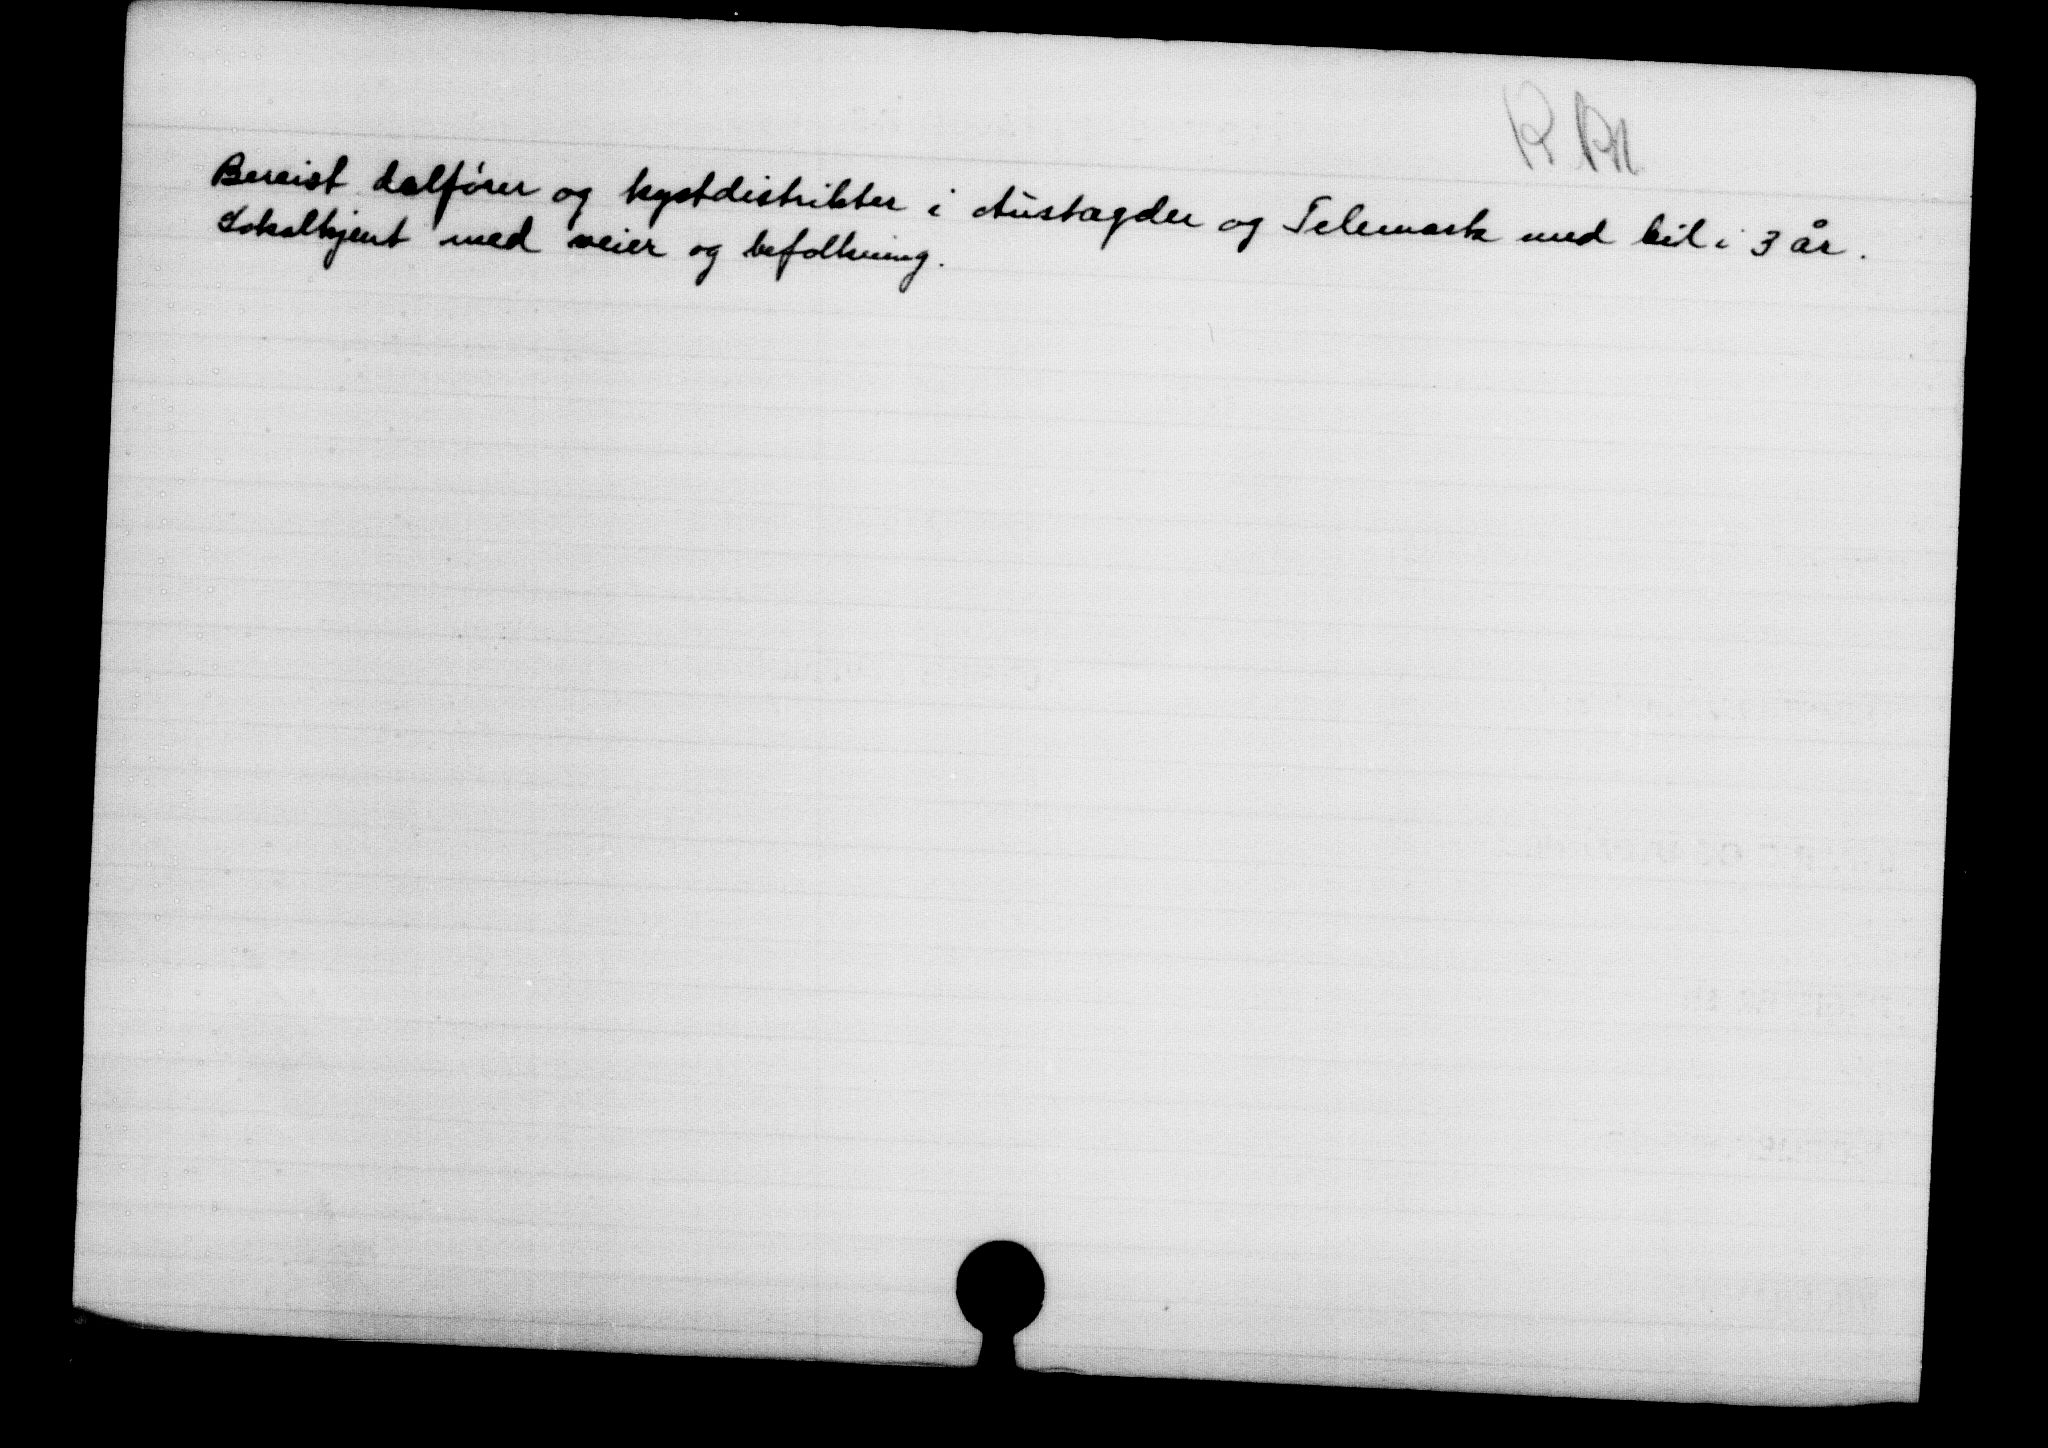 Bereist dalfører og kystdistrikter i Austagder og Telemark med bil i 3 år.
Lokalkjent med veier og befolkning.